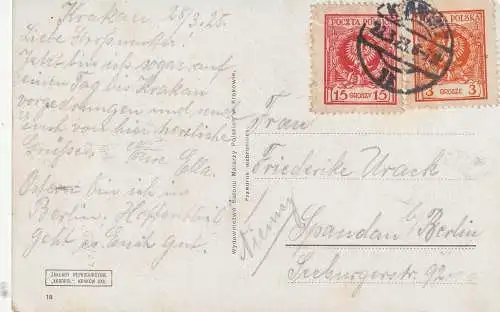 Krakau, 28/3.25.
Liebe Großmutter!
Jetzt bin ich sogar auf
einen Tag bis Krakau
vorgedrungen und sende
Euch von hier herzliche
Grüsse. Eure Ella.
Ostern bin ich in
Berlin. Hoffentlich
geht es Euch gut.
ZAKŁADY PRZEDRUKOWE
"AKROPOL" KRAKÓW XXII.
18
Wydawnictwo Salonu Malarzy Polskich w Krakowie.
Przedruk wzbroniony.
POCZTA POLSKA
15 GROSZY 15
POLSKA
3 GROSZE 3
Frau
Friederike Urack
Niemcy
Spandau b. Berlin
Seeburgerstr. 92